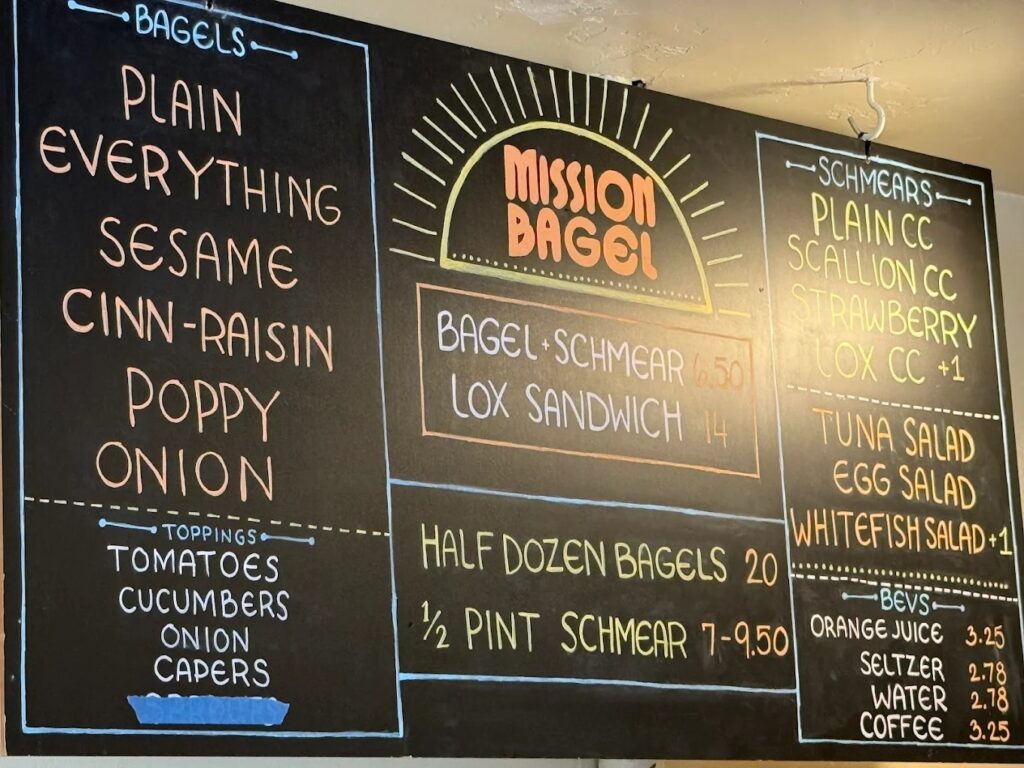 BAGELS
PLAIN
EVERYTHING
SESAME
CINN-RAISIN
POPPY
ONION
TOPPINGS
TOMATOES
CUCUMBERS
ONION
CAPERS
MISSION
BAGEL
BAGEL + SCHMEAR 6.50
LOX SANDWICH 14
HALF DOZEN BAGELS 20
½ PINT SCHMEAR 7-9.50
SCHMEARS
PLAIN CC
SCALLION CC
STRAWBERRY
LOX CC +1
TUNA SALAD
EGG SALAD
WHITEFISH SALAD +1
BEVS
ORANGE JUICE 3.25
SELTZER 2.78
WATER 2.78
COFFEE 3.25